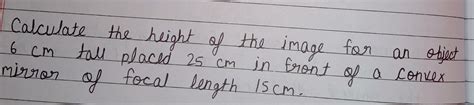 Calculate the height of the image for an object
6 cm tall placed 25 cm in front of a convex
mirror of focal length 15cm.